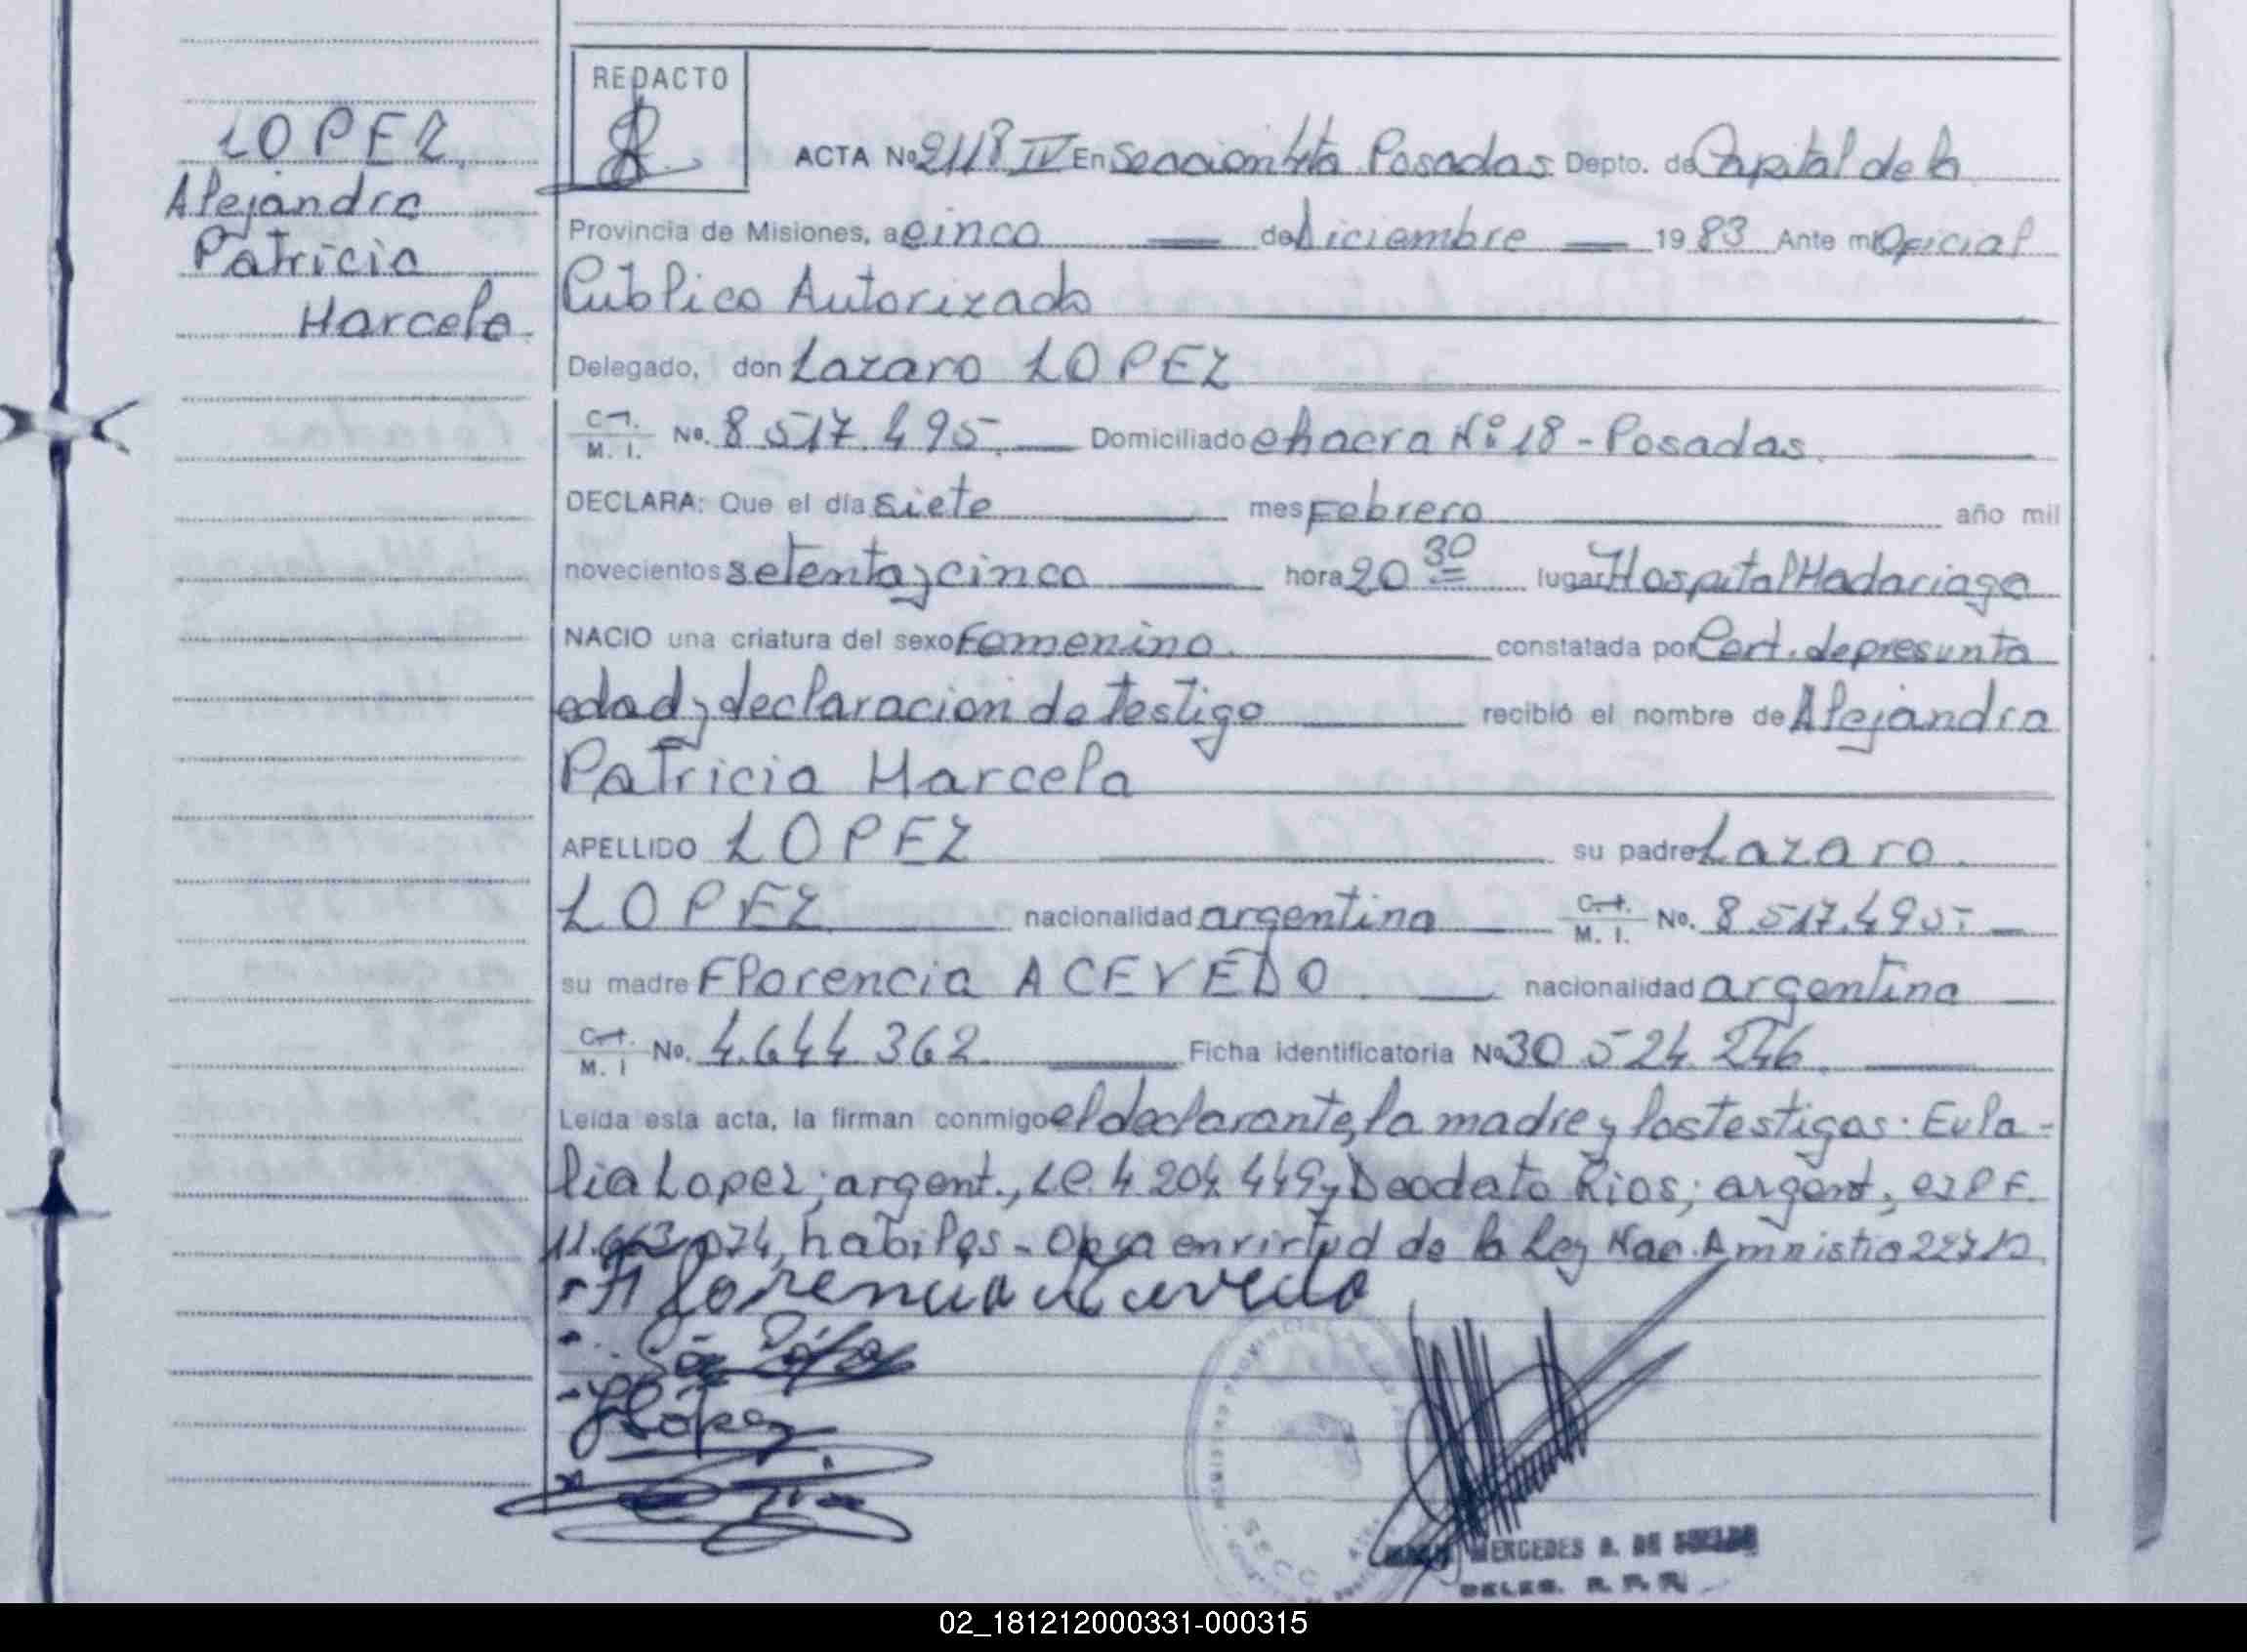 REDACTO
LOPEZ,
Alejandra
Patricia
Marcela.
ACTA No 2118 IV En Seccion 4ta Posadas. Depto. de Capital de la
Provincia de Misiones, a cinco de Diciembre 19 83 Ante mi Oficial
Público Autorizado
Delegado, don Lazaro LOPEZ
C. I. M. I. No. 8.517.495. Domiciliado chacra Nº 18 - Posadas.
DECLARA: Que el día siete mes Febrero año mil
novecientos setenta y cinco hora 20 30 lugar Hospital Madariaga
NACIO una criatura del sexo Femenino. constatada por Cert. de presunta
edad y declaracion de testigo recibió el nombre de Alejandra
Patricia Marcela
APELLIDO LOPEZ su padre Lazaro
LOPEZ nacionalidad argentina C. I. M. I. No. 8.517.495.-
su madre Florencia ACEVEDO nacionalidad argentina
C. I. M. I No. 4.644.362. Ficha identificatoria No 30.524.246.
Leída esta acta, la firman conmigo el declarante, la madre y los testigos: Eula-
lia Lopez; argent., LC. 4.204.449 y Deodato Rios; argent.,
074, habiles - Obra en virtud de la Ley Nac. Amnistia
Florencia Acevedo
López
SECC
MERCEDES
DELEG. R. P. P.
02_181212000331-000315